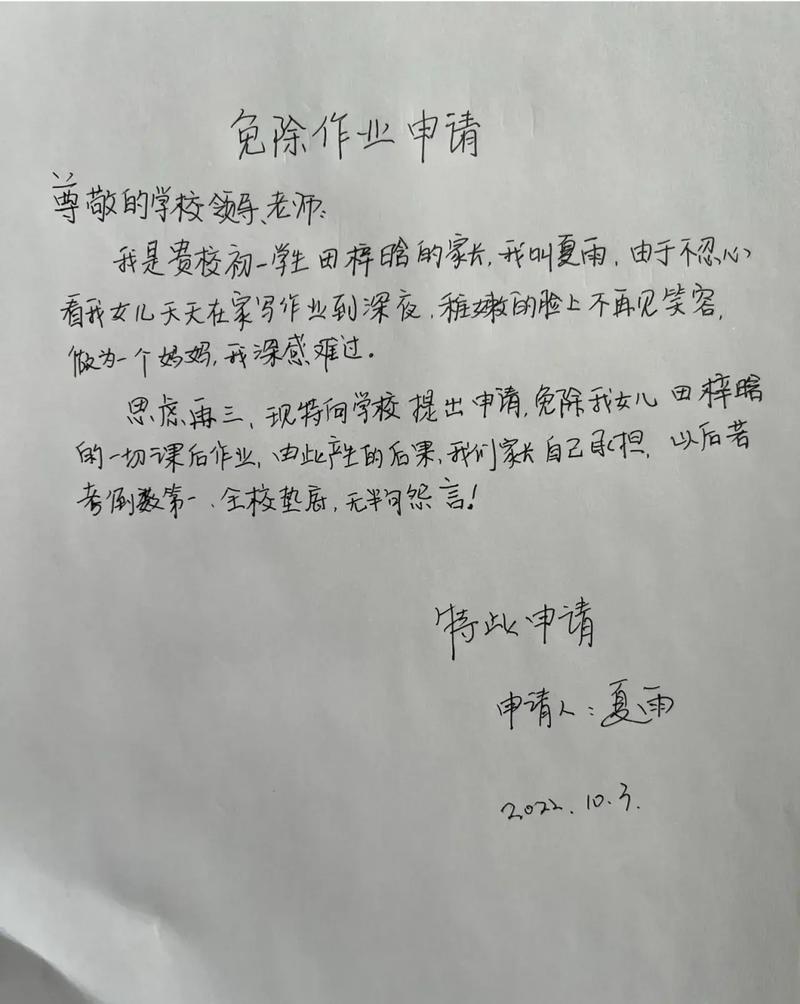 免除作业申请
尊敬的学校领导、老师：
我是贵校初一学生田梓晗的家长，我叫夏雨，由于不忍心
看我女儿天天在家写作业到深夜，稚嫩的脸上不再见笑容，
做为一个妈妈，我深感难过。
思虑再三，现特向学校提出申请，免除我女儿田梓晗
的一切课后作业，由此产生的后果，我们家长自己承担，以后若
考倒数第一、全校垫底，无半句怨言！
特此申请
申请人：夏雨
2022.10.3.